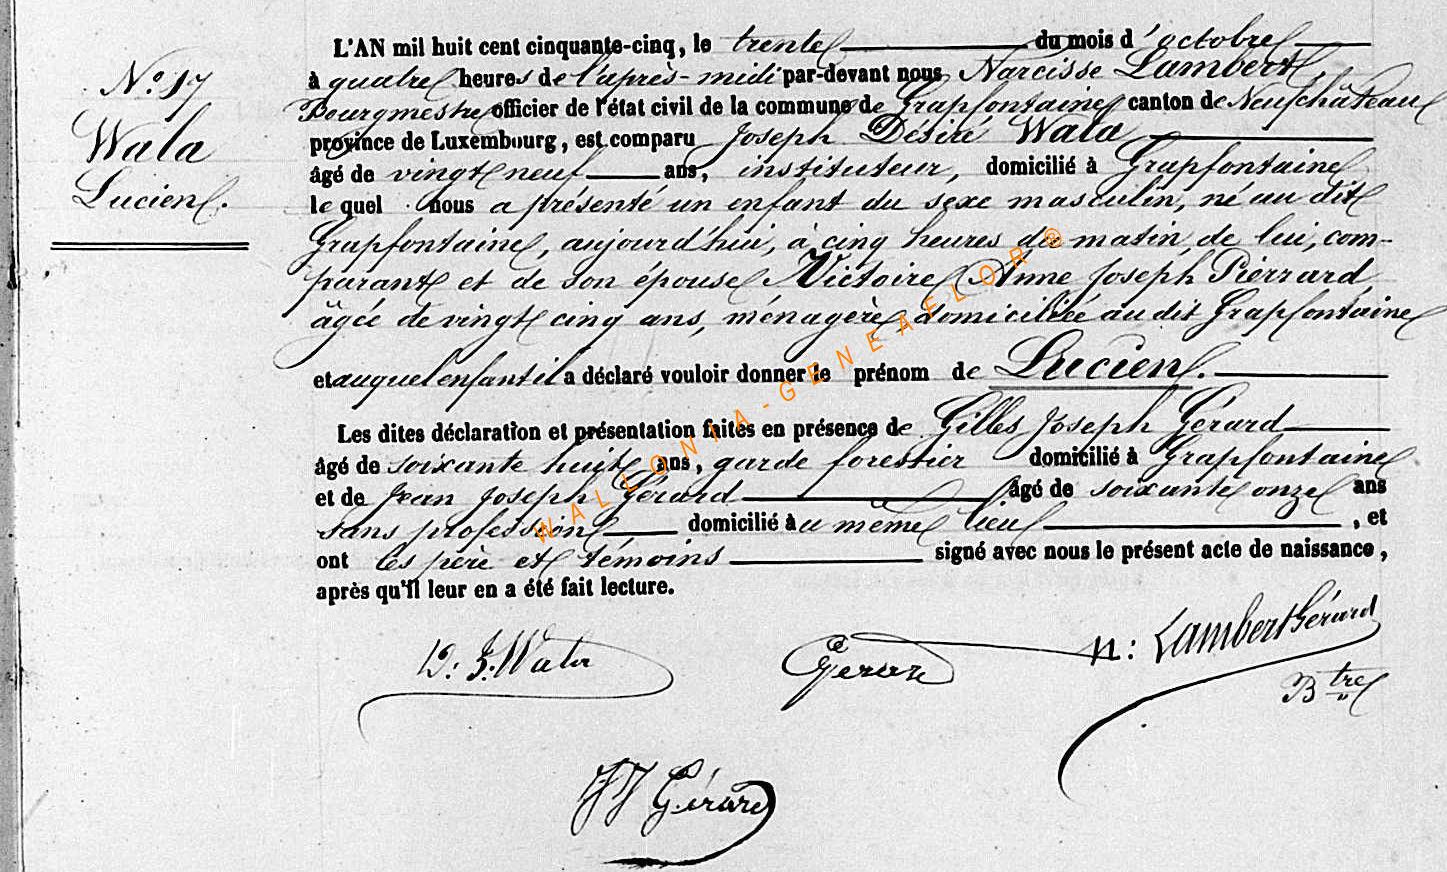 N.° 17
Wala
Lucien.
L'AN mil huit cent cinquante-cinq, le trente du mois d'octobre
à quatre heures de l'après-midi par-devant nous Narcisse Lambert,
Bourgmestre officier de l'état civil de la commune de Grapfontaine canton de Neufchâteau
province de Luxembourg, est comparu Joseph Désiré Wala
âgé de vingt neuf ans, instituteur, domicilié à Grapfontaine
le quel nous a présenté un enfant du sexe masculin, né au dit
Grapfontaine, aujourd'hui, à cinq heures de matin, de lui, com-
parant et de son épouse Victoire Anne Joseph Piérrard
âgée de vingt cinq ans, ménagère, domiciliée au dit Grapfontaine
et auquel enfant il a déclaré vouloir donner le prénom de Lucien.
Les dites déclaration et présentation faites en présence de Gilles Joseph Gérard
âgé de soixante huit ans, garde forestier domicilié à Grapfontaine
et de Jean Joseph Gérard âgé de soixante onze ans
sans profession domicilié au même lieu, et
ont les père et témoins signé avec nous le présent acte de naissance,
après qu'il leur en a été fait lecture.
D. J. Wala Gerard N: Lambert Gérard
Btre
JJ Gérard
WALLONIA-GENEAFLOR®